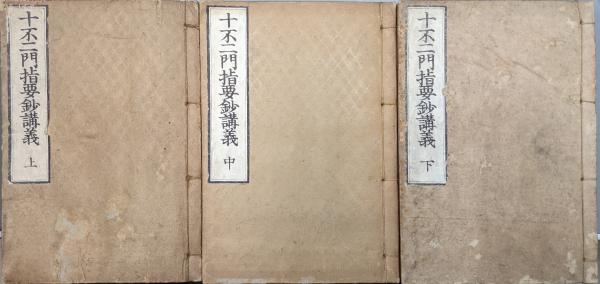 十不二門指要鈔講義 上
十不二門指要鈔講義 中
十不二門指要鈔講義 下